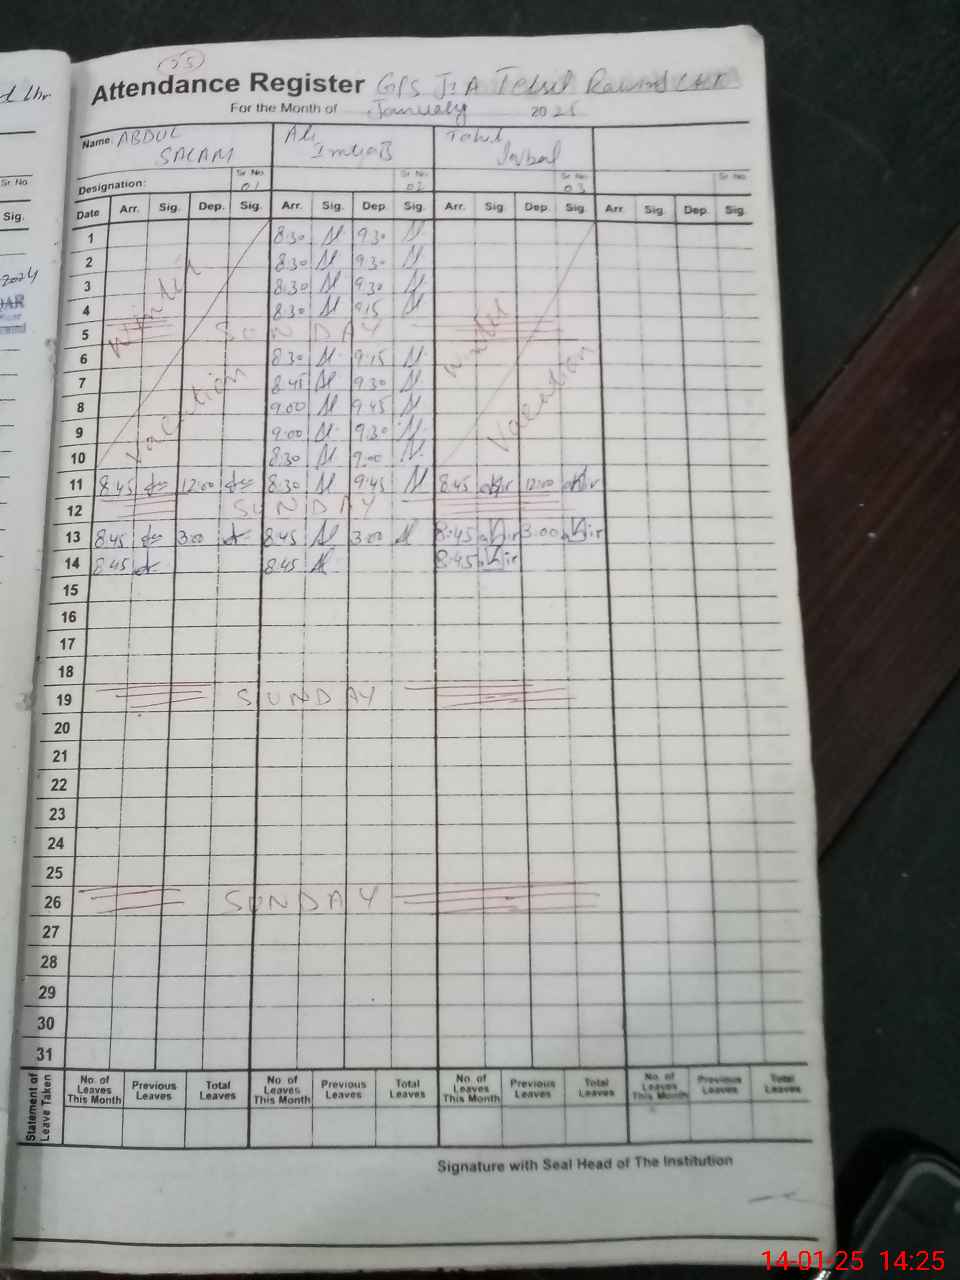 d Lhr
Sr. No.
Sig.
2024
DAR
25
Attendance Register G/S J:A Tehsil Raiwind LHR
For the Month of January 2025
Name: ABDUL SALAM Ali Imtiaz Tahir Iqbal
Sr. No. Sr. No. Sr. No. Sr. No.
Designation: 01 02 03
Date Arr. Sig. Dep. Sig. Arr. Sig. Dep. Sig. Arr. Sig. Dep. Sig. Arr. Sig. Dep. Sig.
Winter Vacation
Winter Vacation
1 8:30 Al 9:30 Al
2 8:30 Al 9:30 Al
3 8:30 Al 9:30 Al
4 8:30 Al 9:15 Al
5 SUNDAY
6 8:30 Al 9:15 Al
7 8:45 Al 9:30 Al
8 9:00 Al 9:45 Al
9 9:00 Al 9:30 Al
10 8:30 Al 9:00 Al
11 8:45 12:00 8:30 Al 9:45 Al 8:45 12:00
12 SUNDAY
13 8:45 3:00 8:45 Al 3:00 Al 8:45 3:00
14 8:45 8:45 Al 8:45
15
16
17
18
19 SUNDAY
20
21
22
23
24
25
26 SUNDAY
27
28
29
30
31
Statement of Leave Taken
No. of Leaves This Month Previous Leaves Total Leaves No. of Leaves This Month Previous Leaves Total Leaves No. of Leaves This Month Previous Leaves Total Leaves No. of Leaves This Month Previous Leaves Total Leaves
Signature with Seal Head of The Institution
14-01-25 14:25